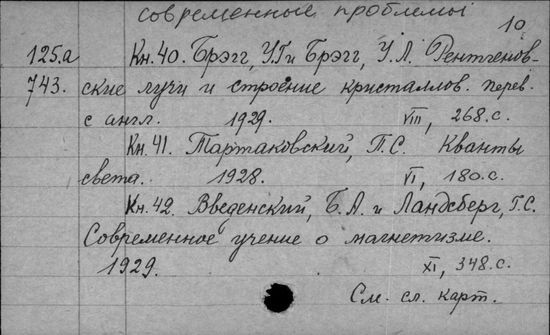 современные проблемы
10
125.а Кн.40. Брэгг, У.Г и Брэгг, У.Л. Рентгенов-
743. ские лучи и строение кристаллов. перев.
с англ. 1929. VIII, 268.с.
Кн.41. Тартаковский, П.С. Кванты
света. 1928. VI, 180.с.
Кн.42. Введенский, Б.А. и Ландсберг, Г.С.
Современное учение о магнетизме.
1929. XI, 348.с.
См. сл. карт.